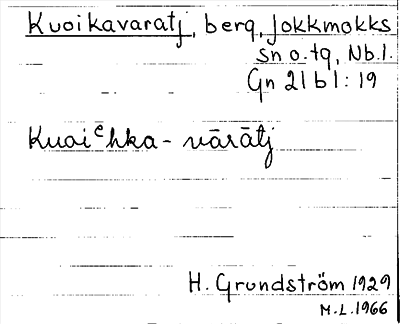 Kuoikavaratj, berg, Jokkmokks
sn o. tg, Nb. l.
Gn 21 b 1 : 19
Kuaiᵉhka - vārātj
H. Grundström 1929
M. L. 1966